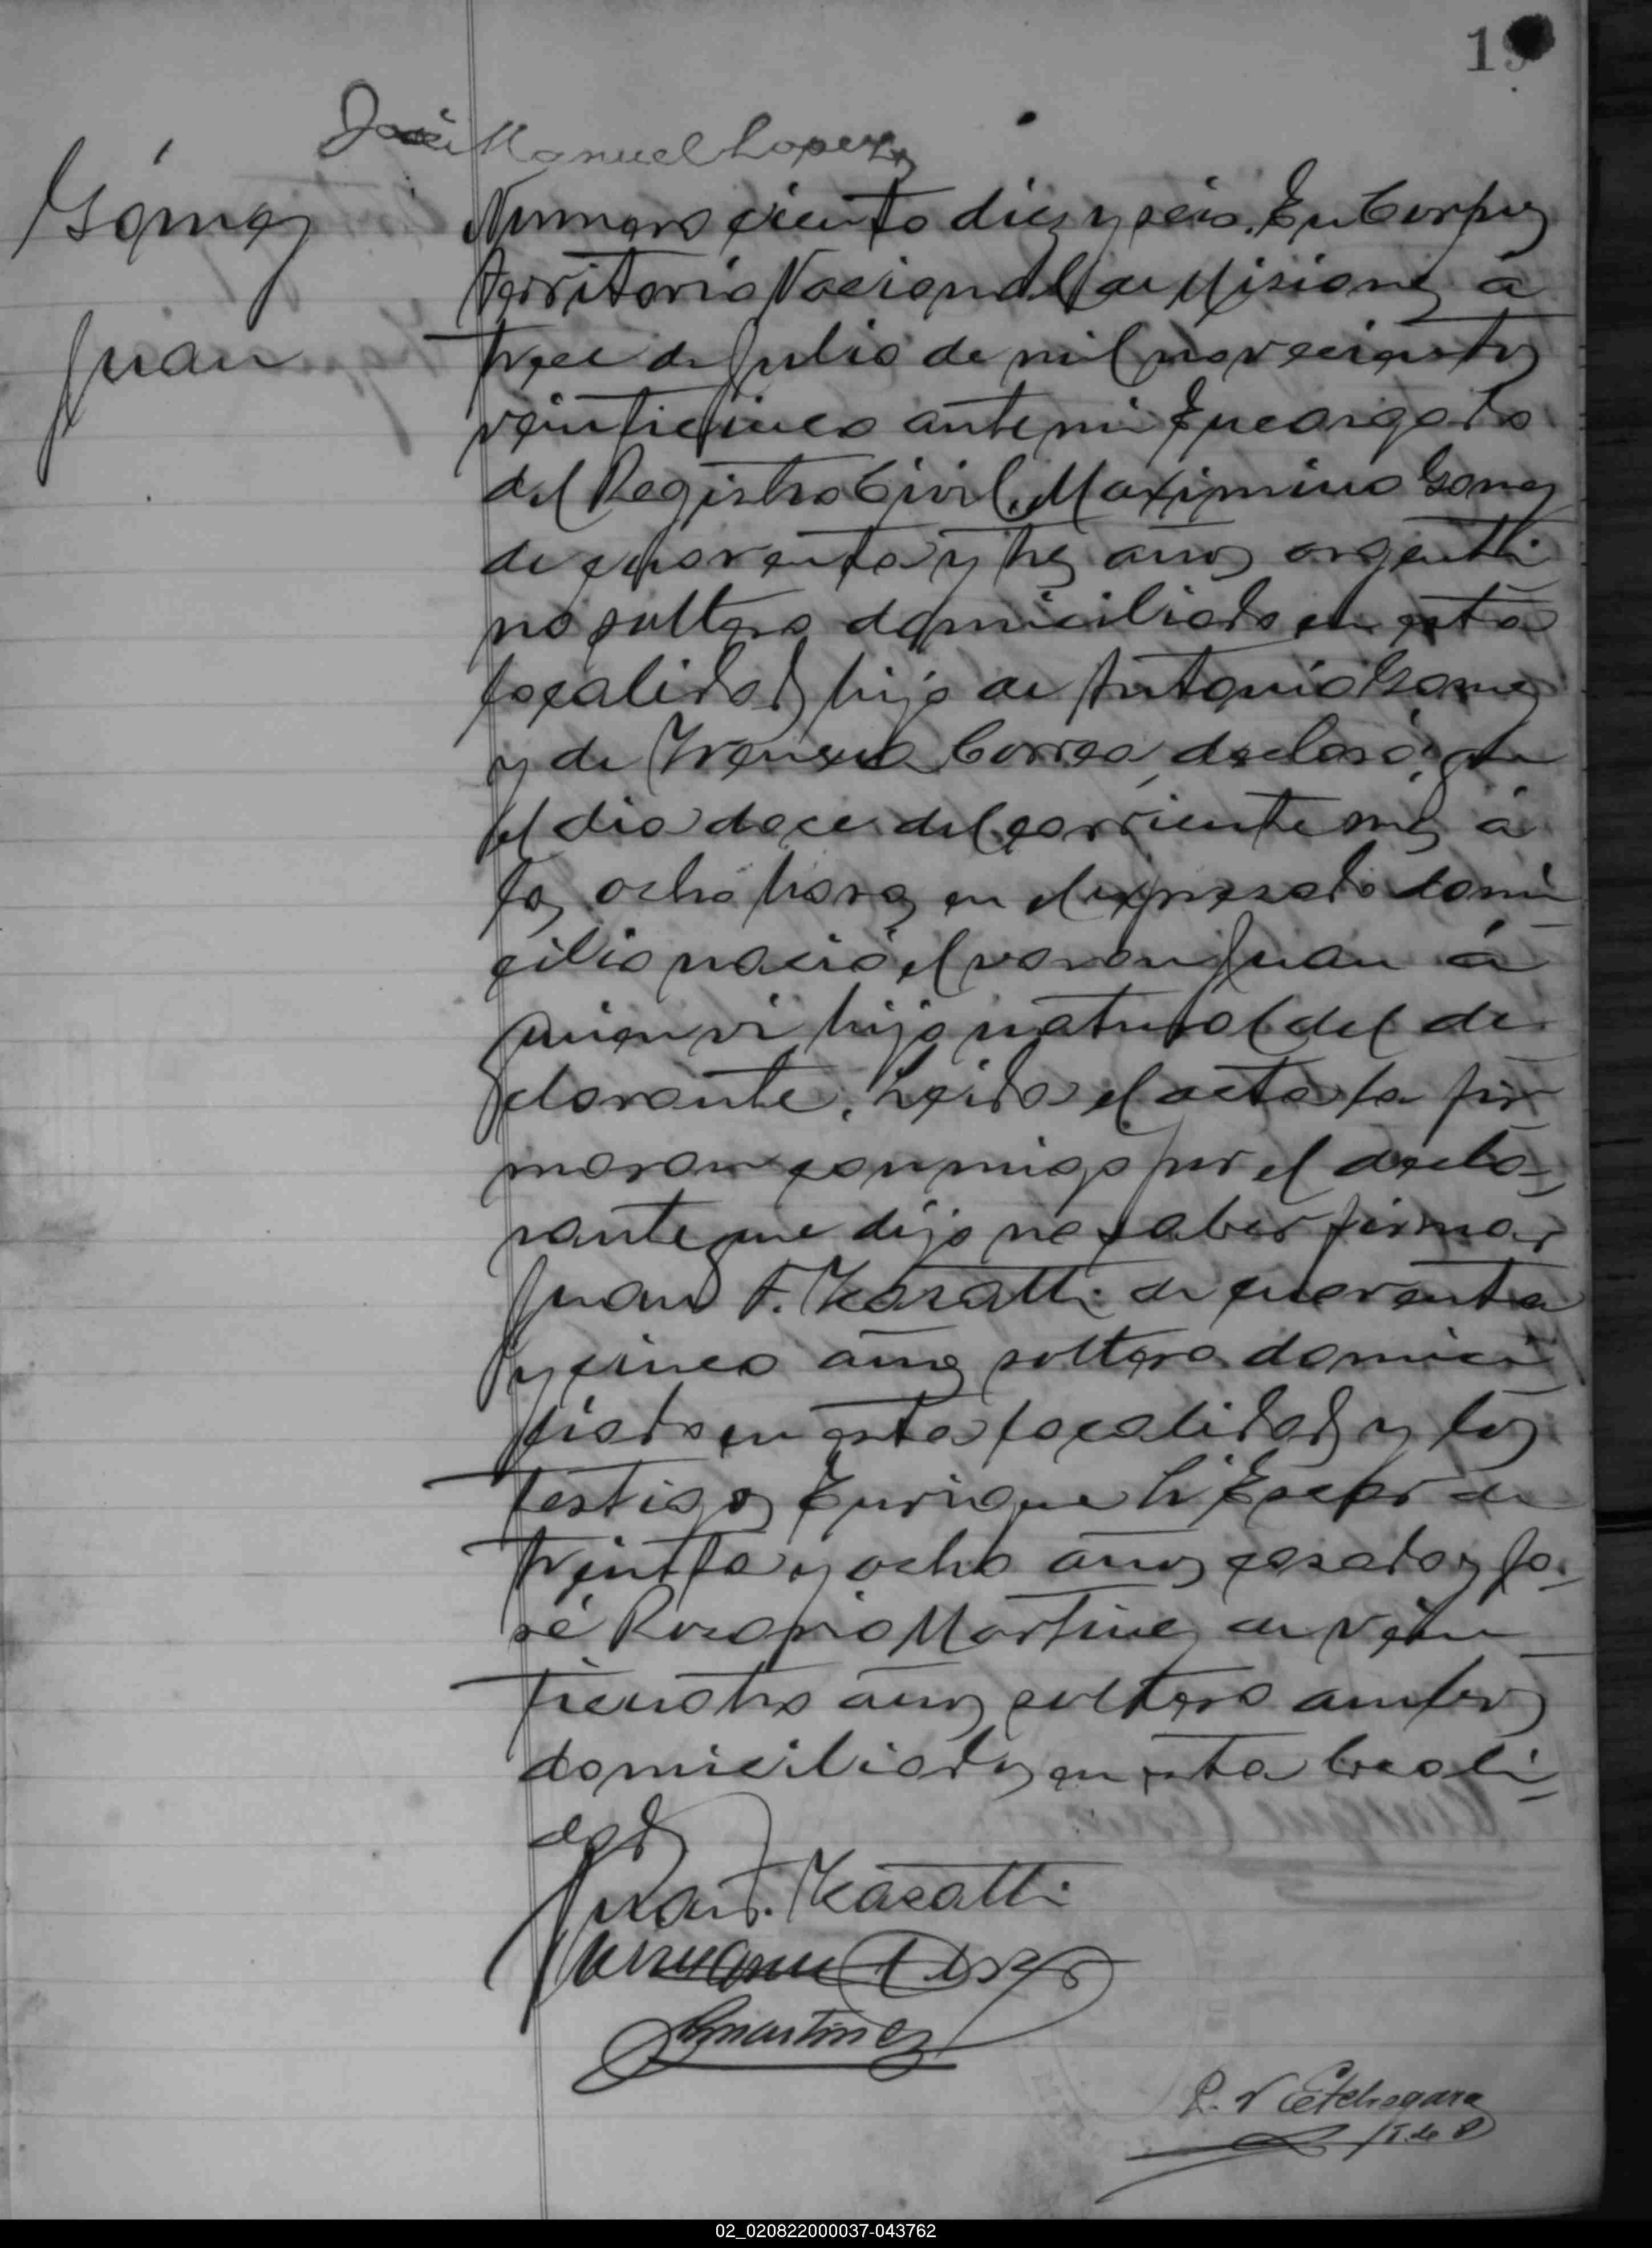 José Manuel Lopez
Gómez
Juan
Numero ciento diez y seis. En Corpus
territorio Nacional de Misiones á
trece de Julio de mil novecientos
veinticinco ante mi Encargado
del Registro Civil, Maximino Gomez
de cuarenta y tres años argenti
no soltero domiciliado en esta
localidad hijo de Antonio Gomez
y de Correa, declaró: que
el dia doce del corriente mes á
las ocho horas en el expresado domi
cilio nació el varon Juan á
quien vi hijo natural del de
clarante. Leida el acta la fir
maron conmigo por el decla-
rante que dijo no saber firmar
Juan F. de cuarenta
y cinco años soltero domici
liado en esta localidad y los
testigos Enrique de
treinta y ocho años casado y Jo-
sé Rosario Martinez de vein
ticuatro años soltero ambos
domiciliados en esta locali-
dad
Juan F.
Martinez
P. N Etchegaray
J. de P
02_020822000037-043762